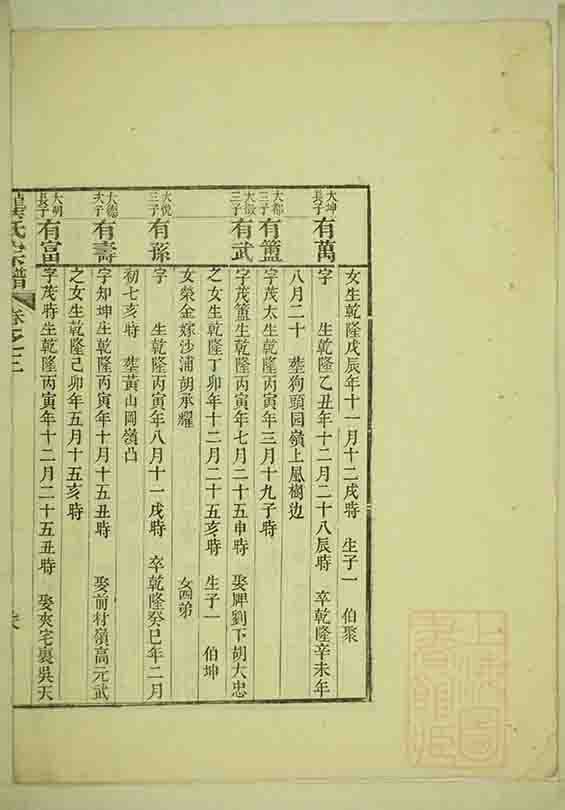 女生乾隆戊辰年十一月十二戌時 生子一 伯聚
大坤長子 有萬
字 生乾隆乙丑年十二月二十八辰時 卒乾隆辛未年
八月二十 塟狗頭园嶺上風樹边
大都三子 有簠
字茂太生乾隆丙寅年三月十九子時
三子 有武
字茂簠生乾隆丙寅年七月二十五申時 娶牌劉下胡大忠
之女生乾隆丁卯年十二月二十五亥時 生子一 伯坤
女榮金嫁沙浦胡承耀 女四弟
大悅三子 有孫
字 生乾隆丙寅年八月十一戌時 卒乾隆癸巳年二月
初七亥時 塟黃山岡嶺凸
大德次子 有壽
字知坤生乾隆丙寅年十月十五丑時 娶前材嶺高元武
之女生乾隆己卯年五月十五亥時
大明長子 有富
字茂時生乾隆丙寅年十二月二十五丑時 娶夾宅裏吳天
氏宗譜 卷之三